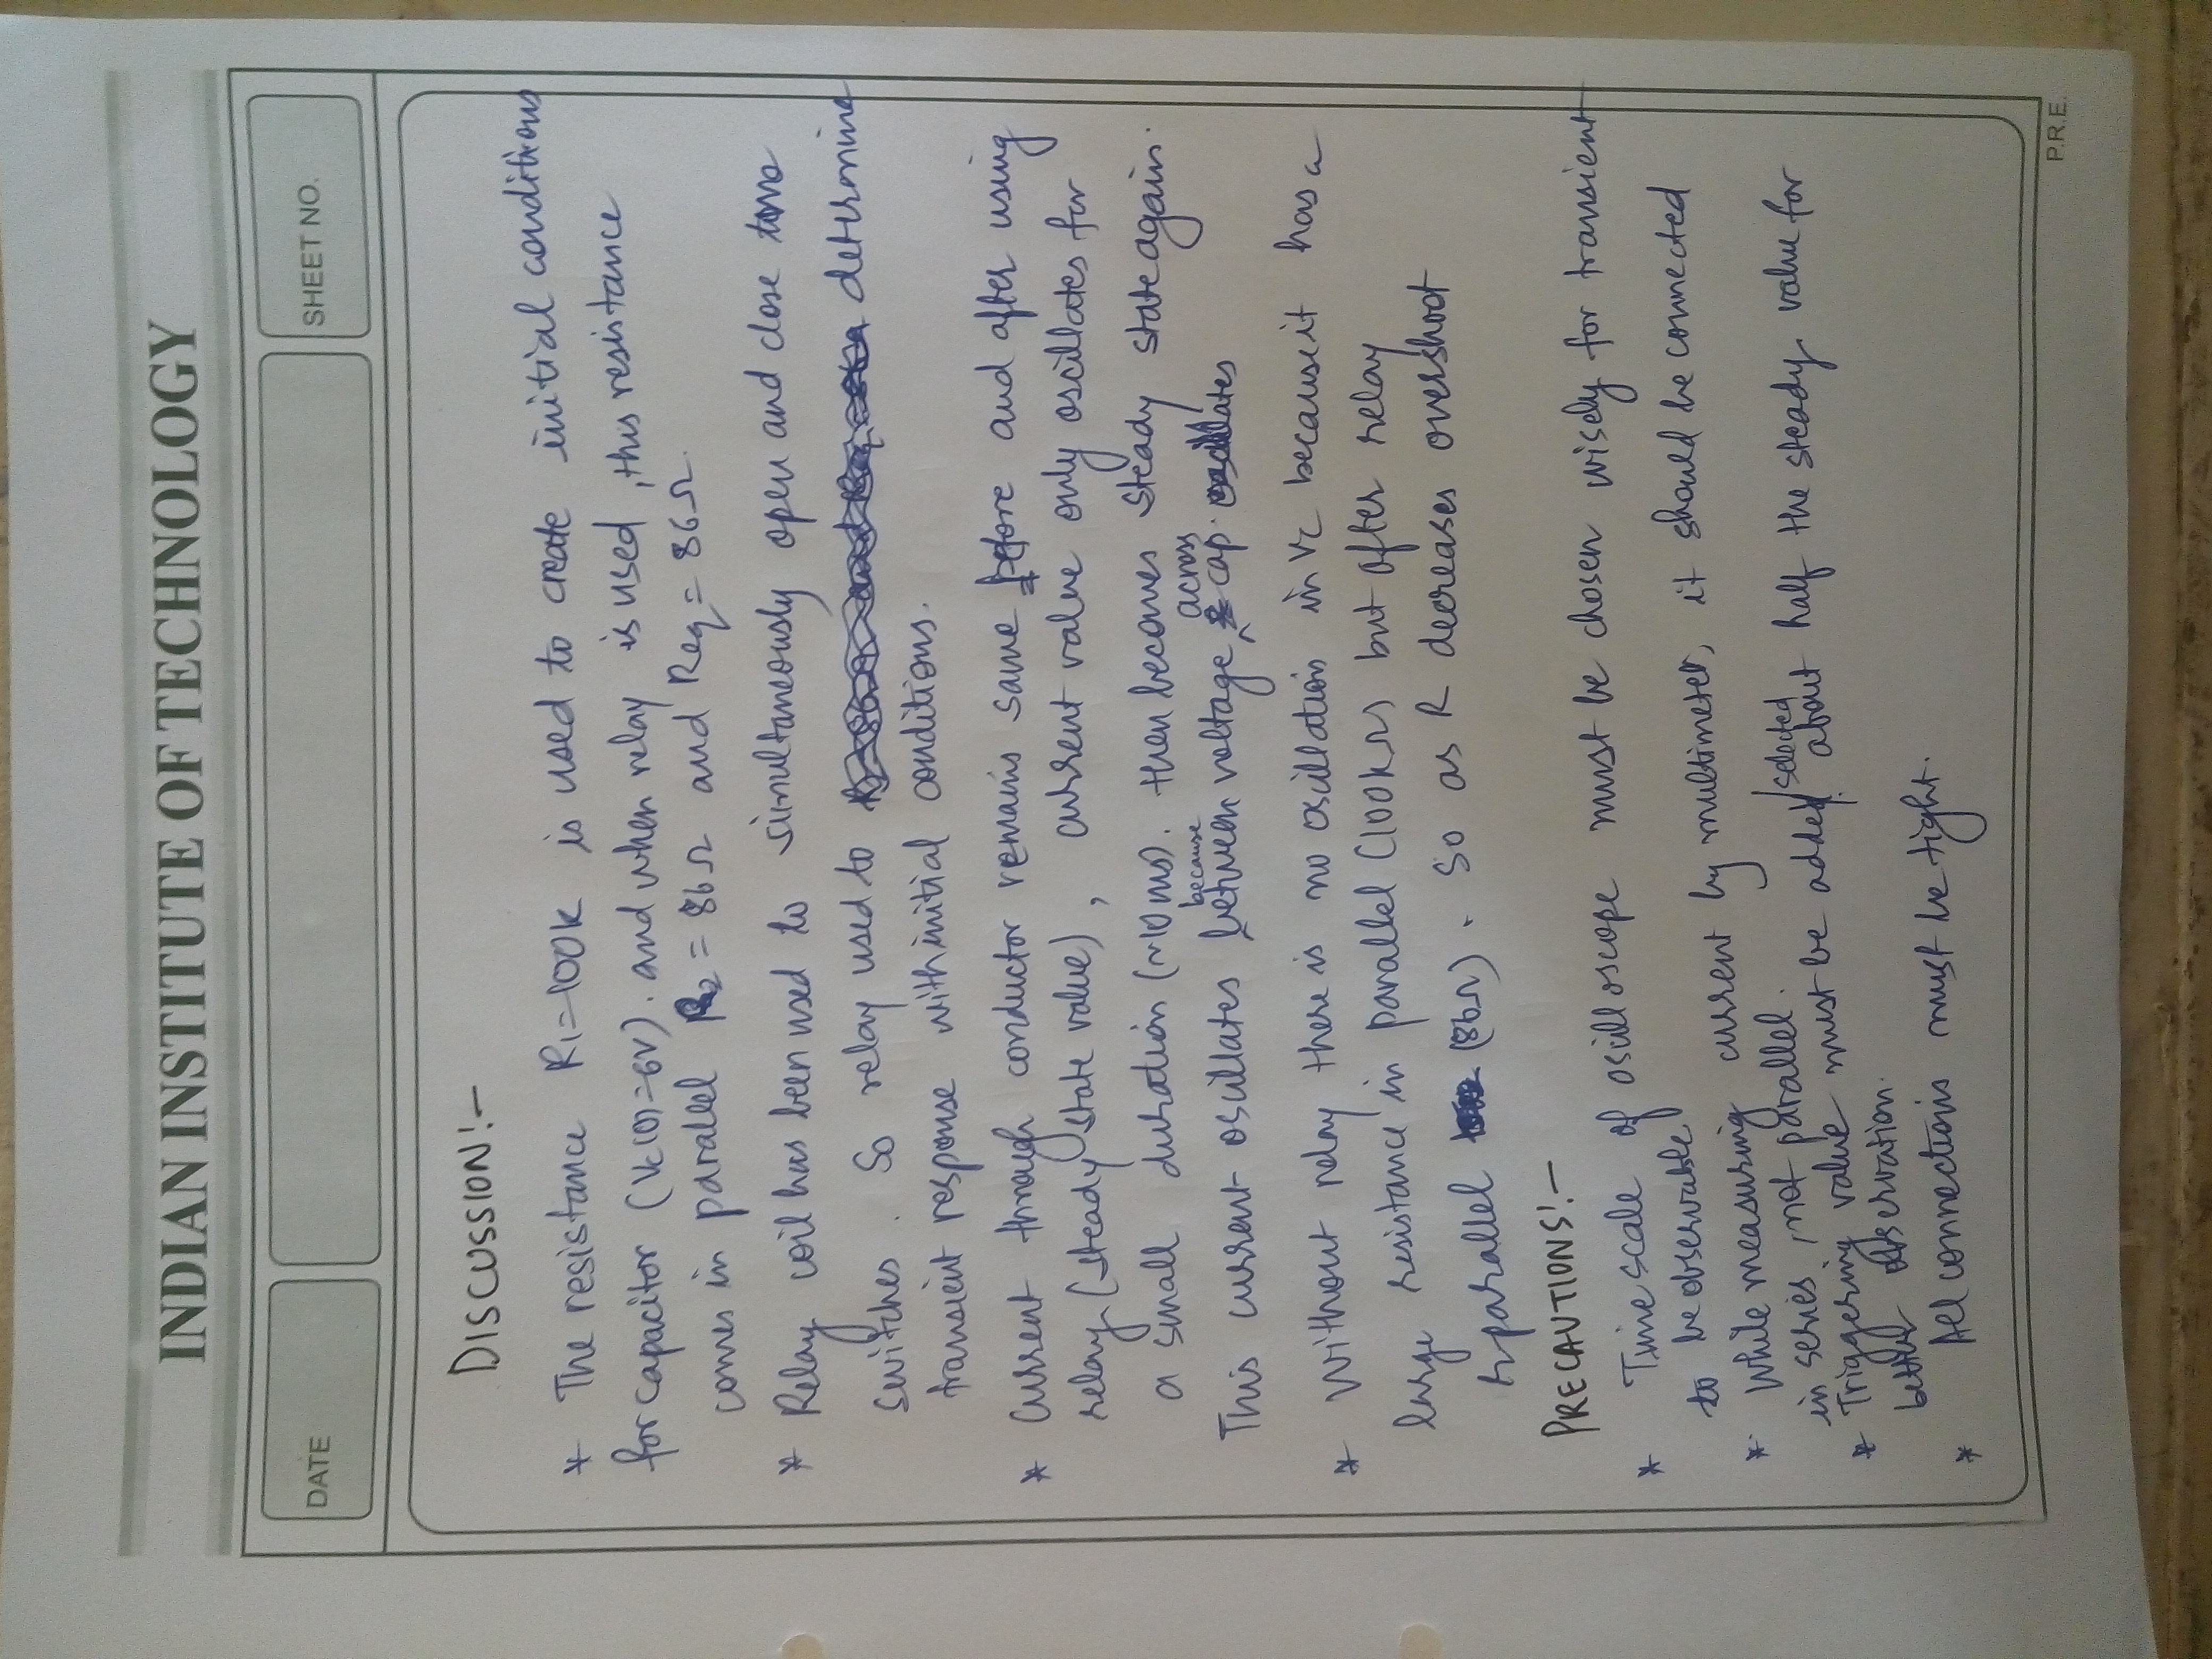 INDIAN INSTITUTE OF TECHNOLOGY
DATE
SHEET NO.
DISCUSSION!-
* The resistance R1=100k is used to create initial conditions
for capacitor (Vc(0)=6V). and when relay is used, this resistance
comes in parallel R2 = 86Ω and Req = 86Ω.
* Relay coil has been used to simultaneously open and close two
switches. So relay used to determine
transient response with initial conditions.
* Current through conductor remains same before and after using
relay (steady state value), current value only oscillates for
a small duration (~10ms). then becomes steady state again.
because across
This current oscillates between voltage cap. oscillates
* Without relay there is no oscillation in Vc because it has a
large resistance in parallel (100kΩ) but after relay
parallel (86Ω). So as R decreases overshoot
PRECAUTIONS!-
* Time scale of oscilloscope must be chosen wisely for transient
to be observable
* While measuring current by multimeter, it should be connected
in series, not parallel.
selected
* Triggering value must be added about half the steady value for
better observation.
* All connections must be tight.
P.R.E.